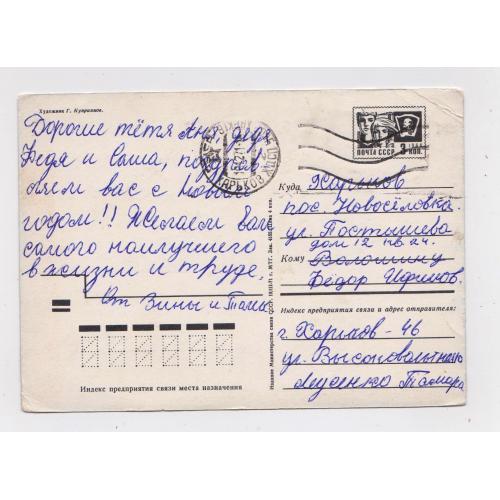 Художник Г. Куприянов.
Дорогие тётя Аня, дядя
Федя и Саша, поздрав
ляем вас с Новым
годом!! Желаем Вам
самого наилучшего
в жизни и труде,
От Зины и Тамары
Индекс предприятия связи места назначения
Издание Министерства связи СССР.
ХАРЬКОВ
ПОЧТА СССР 3 КОП.
Куда Харьков
пос. Новосёловка
ул. Постышева
дом 12 кв. 24.
Кому Волошину
Фёдор Ефимов.
Индекс предприятия связи и адрес отправителя:
г. Харьков - 46
ул. Высоковольтная
Тамара